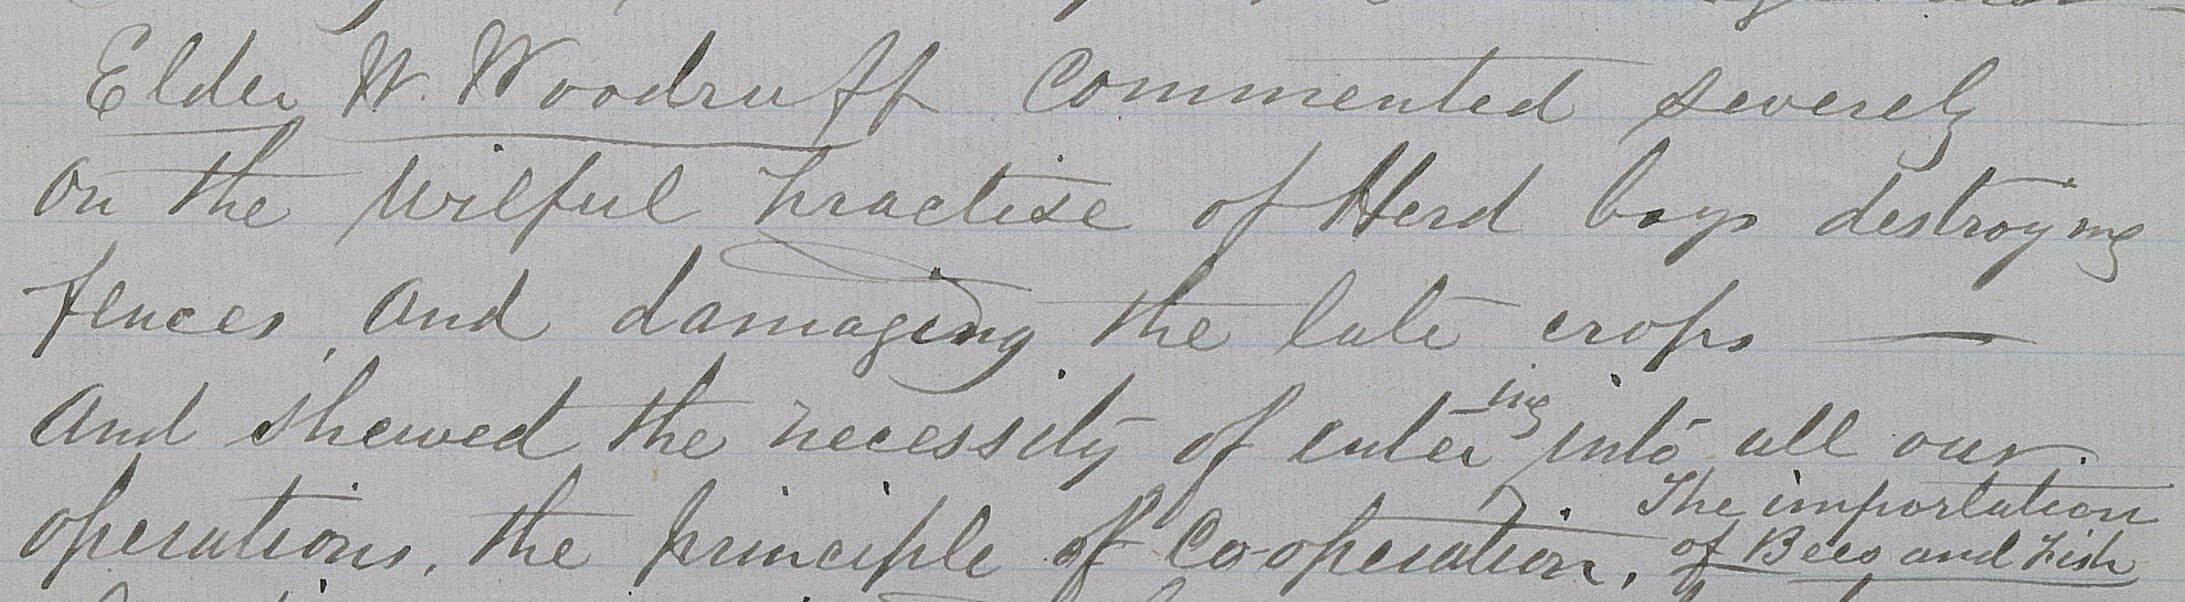 Elder W. Woodruff Commented severely
on the wilful practise of Herd boys destroying
fences, and damaging the late crops —
And shewed the necessity of entering into all our
operations, the principle of Co-operation. The importation
of Bees and Fish